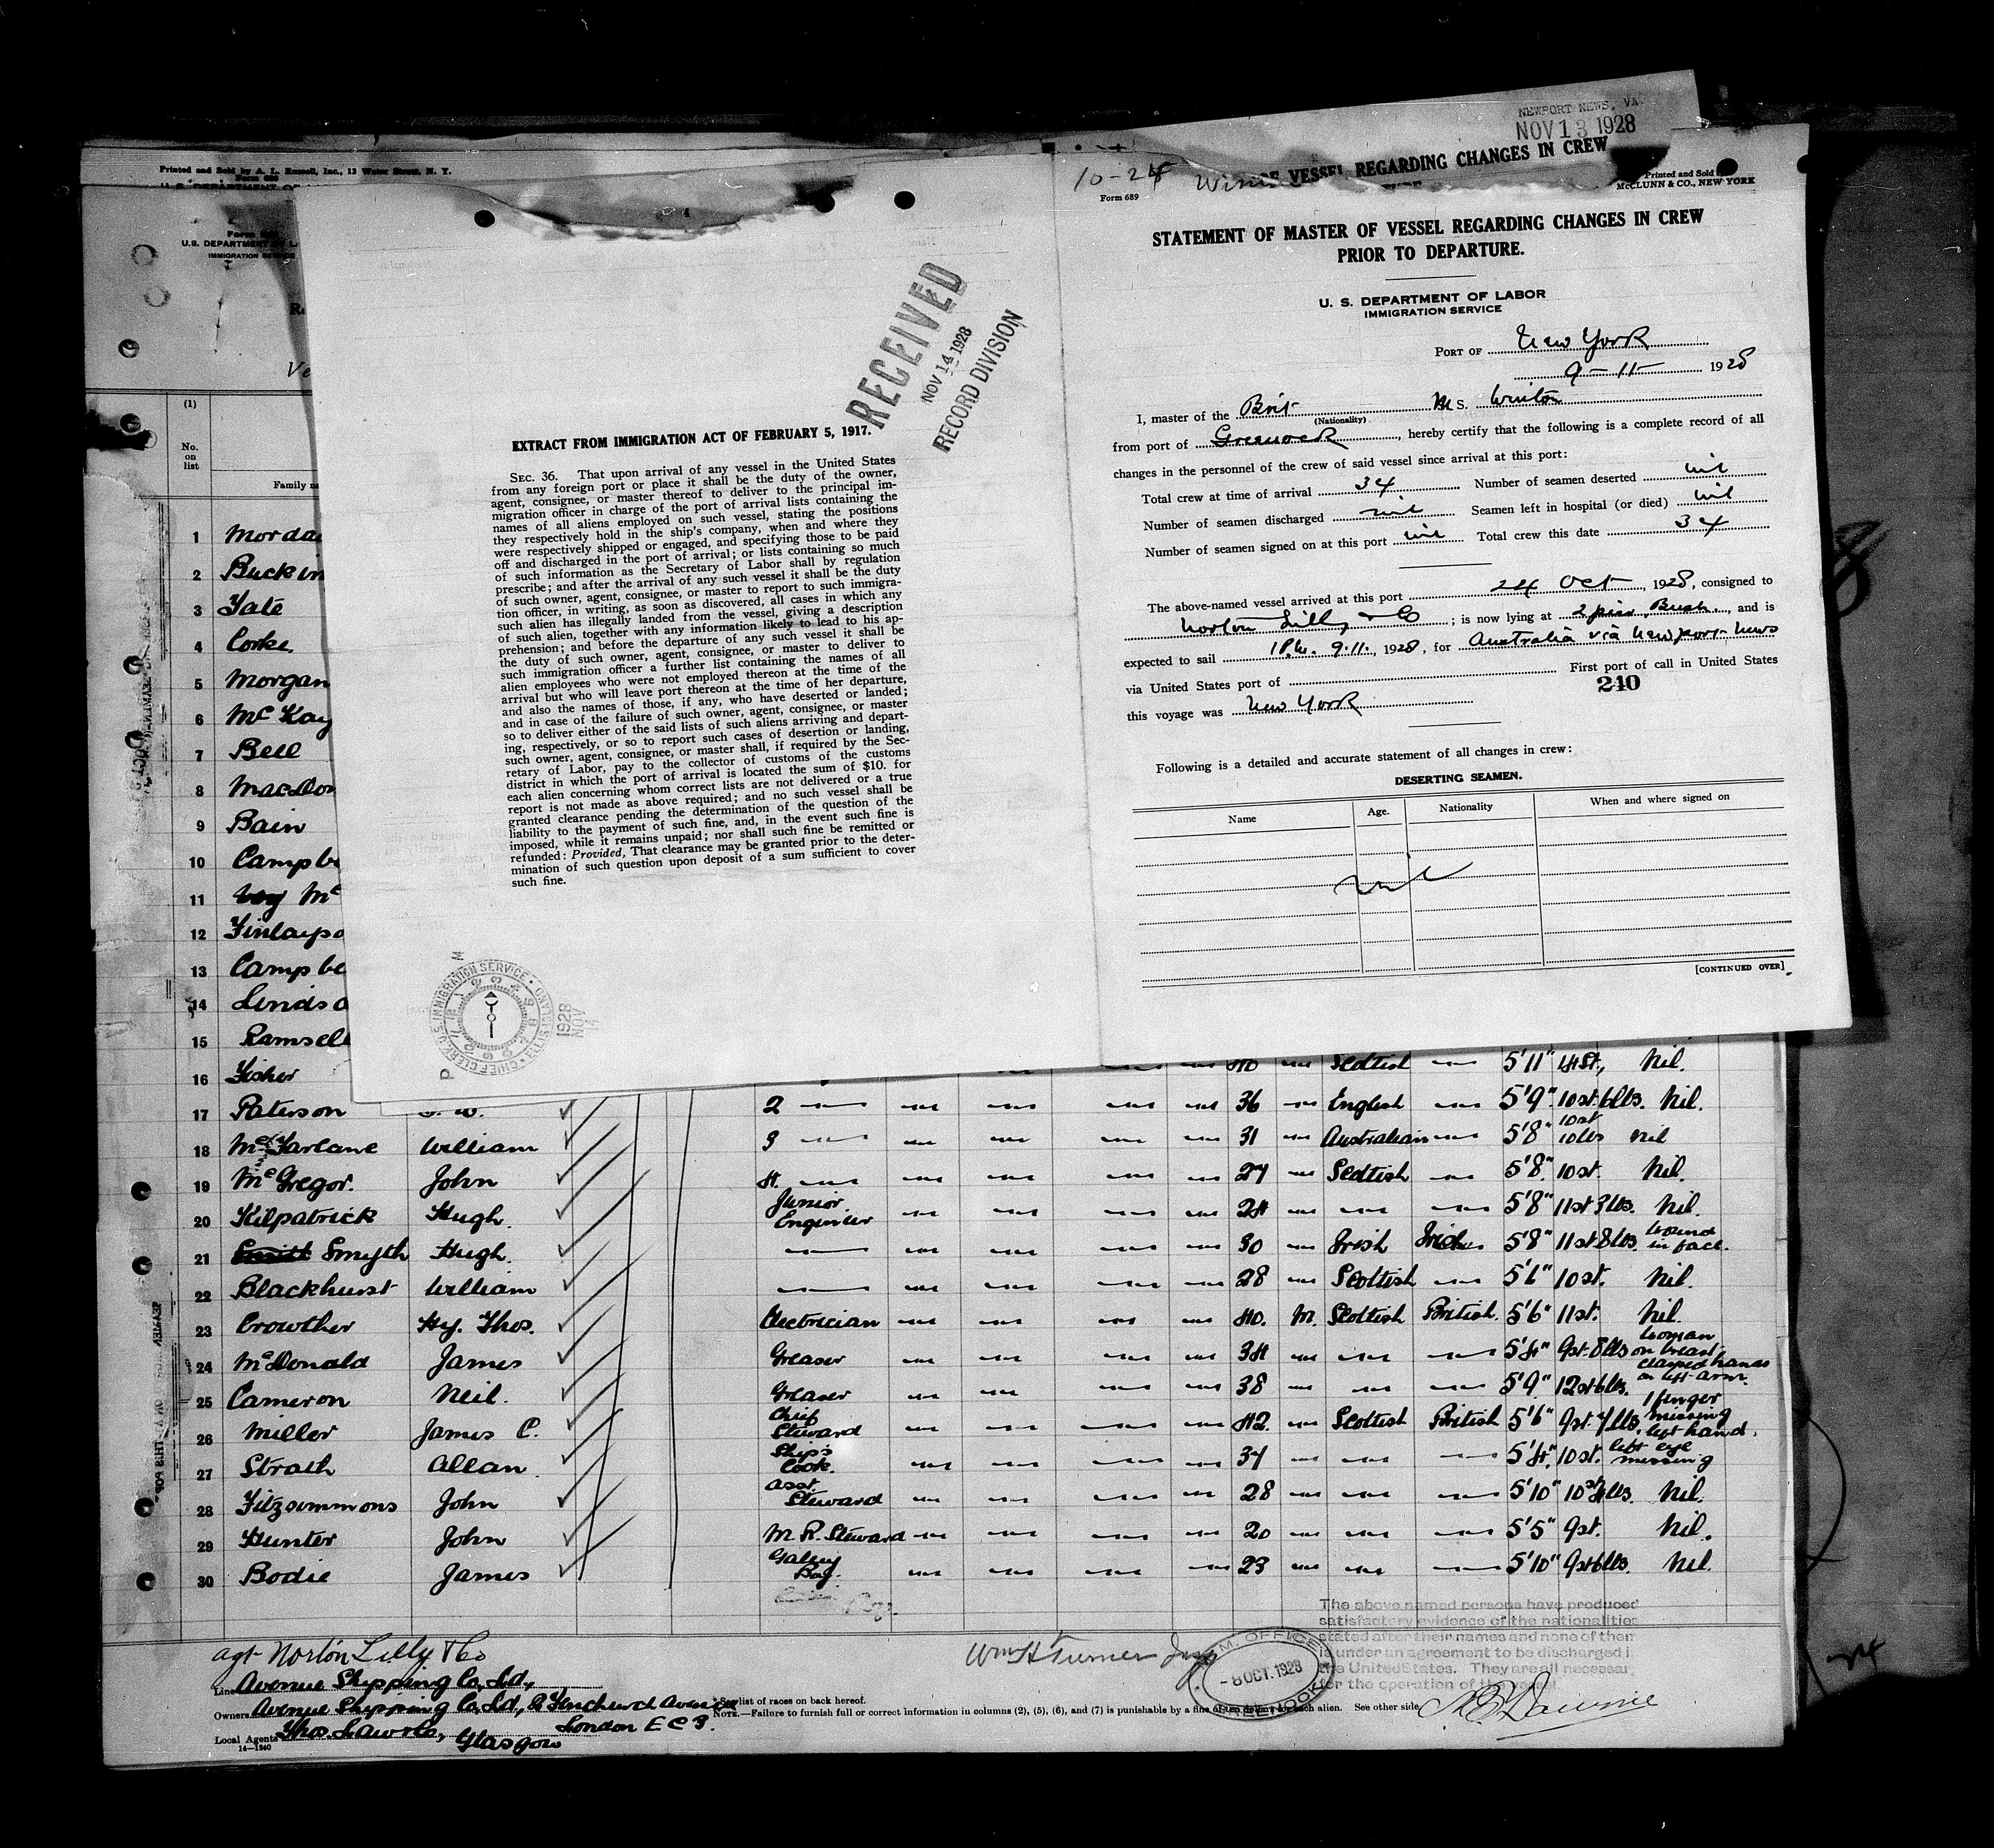 NEWPORT NEWS, VA.
NOV 13 1928
VESSEL REGARDING CHANGES IN CREW
Printed and Sold by A. L. Russell, Inc., 13 Water Street, N. Y.
U. S. DEPARTMENT OF LA
IMMIGRATION SERVICE
(1)
No.
on
list
Family n
RECEIVED
NOV 14 1928
RECORD DIVISION
EXTRACT FROM IMMIGRATION ACT OF FEBRUARY 5, 1917.
SEC. 36. That upon arrival of any vessel in the United States
from any foreign port or place it shall be the duty of the owner,
agent, consignee, or master thereof to deliver to the principal im-
migration officer in charge of the port of arrival lists containing the
names of all aliens employed on such vessel, stating the positions
they respectively hold in the ship's company, when and where they
were respectively shipped or engaged, and specifying those to be paid
off and discharged in the port of arrival; or lists containing so much
of such information as the Secretary of Labor shall by regulation
prescribe; and after the arrival of any such vessel it shall be the duty
of such owner, agent, consignee, or master to report to such immigra-
tion officer, in writing, as soon as discovered, all cases in which any
such alien has illegally landed from the vessel, giving a description
of such alien, together with any information likely to lead to his ap-
prehension; and before the departure of any such vessel it shall be
the duty of such owner, agent, consignee, or master to deliver to
such immigration officer a further list containing the names of all
alien employees who were not employed thereon at the time of the
arrival but who will leave port thereon at the time of her departure,
and also the names of those, if any, who have deserted or landed;
and in case of the failure of such owner, agent, consignee, or master
so to deliver either of the said lists of such aliens arriving and depart-
ing, respectively, or so to report such cases of desertion or landing,
such owner, agent, consignee, or master shall, if required by the Sec-
retary of Labor, pay to the collector of customs of the customs
district in which the port of arrival is located the sum of $10. for
each alien concerning whom correct lists are not delivered or a true
report is not made as above required; and no such vessel shall be
granted clearance pending the determination of the question of the
liability to the payment of such fine, and, in the event such fine is
imposed, while it remains unpaid; nor shall such fine be remitted or
refunded: Provided, That clearance may be granted prior to the deter-
mination of such question upon deposit of a sum sufficient to cover
such fine.
CHIEF CLERK U.S. IMMIGRATION SERVICE ELLIS ISLAND
1928 NOV 14
PM
10-24
Form 689
Printed and Sold
McCLUNN & CO., NEW YORK
STATEMENT OF MASTER OF VESSEL REGARDING CHANGES IN CREW
PRIOR TO DEPARTURE.
U. S. DEPARTMENT OF LABOR
IMMIGRATION SERVICE
PORT OF New York
9-11- 1928
I, master of the Brit M S. Winton
(Nationality)
from port of Greenock, hereby certify that the following is a complete record of all
changes in the personnel of the crew of said vessel since arrival at this port:
Total crew at time of arrival 34 Number of seamen deserted nil
Number of seamen discharged nil Seamen left in hospital (or died) nil
Number of seamen signed on at this port nil Total crew this date 34
The above-named vessel arrived at this port 24 Oct, 1928, consigned to
Norton Lilly & Co; is now lying at 2 pier Bush, and is
expected to sail 1 P.M. 9.11., 1928, for Australia via Newport-News
via United States port of First port of call in United States
240
this voyage was New York
Following is a detailed and accurate statement of all changes in crew:
DESERTING SEAMEN.
Name Age. Nationality When and where signed on
nil
[CONTINUED OVER]
1 Morda
2 Buckin
3 Tate
4 Corke
5 Morgan
6 McKay
7 Bell
8 MacDon
9 Bain
10 Campbe
11 Mc
12 Finlayso
13 Campbe
14 Lindsa
15 Ramsel
16 Fisher 40 — Scottish — 5'11" 14st, Nil.
17 Paterson 2 — — — — — 36 — English — 5'9" 10st.6lbs. Nil.
18 McFarlane William 3 — — — — — 31 — Australian — 5'8" 10st 10lbs Nil
19 McGregor. John 4. — — — — — 27 — Scottish — 5'8" 10st. Nil.
20 Kilpatrick Hugh. Junior Engineer — — — — 24 — — — 5'8" 11st 3lbs. Nil.
21 Smyth Hugh. — — — — — 30 — Irish Irish 5'8" 11st 8lbs. Wound in face.
22 Blackhurst William — — — — — 28 — Scottish — 5'6" 10st. Nil.
23 Crowther Hy. Thos. Electrician — — — — 40. M. Scottish British. 5'6" 11st. Nil.
24 McDonald James Greaser — — — — 34 — — — 5'4" 9st.8lbs Woman on breast clasped hands on left arm.
25 Cameron Neil. Greaser — — — — 38 — — — 5'9" 12st6lbs.
26 Miller James C. Chief Steward — — — — 42. — Scottish British 5'6" 9st.7lbs. 1 finger missing left hand.
27 Strath Allan. Ship's Cook. — — — — 37 — — — 5'4". 10st. left eye missing
28 Fitzsimmons John Asst. Steward — — — — 28 — — — 5'10" 10st lbs. Nil.
29 Hunter John M. R. Steward — — — — 20 — — — 5'5" 9st. Nil.
30 Bodie James Galley Boy. — — — — 23 — — — 5'10" 9st6lbs. Nil.
The above named persons have produced
satisfactory evidence of the nationalities
stated after their names and none of them
is under an agreement to be discharged i
the United States. They are all necessar
for the operation of the vessel.
agt Norton Lilly & Co
Wm H Turner Insp
IMM. OFFICE
- 8 OCT. 1928
GREENOCK
Line Avenue Shipping Co. Ltd.,
Owners Avenue Shipping Co. Ltd., Fenchurch Avenue
London E C 3.
See list of races on back hereof.
NOTE.—Failure to furnish full or correct information in columns (2), (5), (6), and (7) is punishable by a fine of ten dollars for each alien. See other side
Local Agents Thos. Law & Co., Glasgow
14—1240